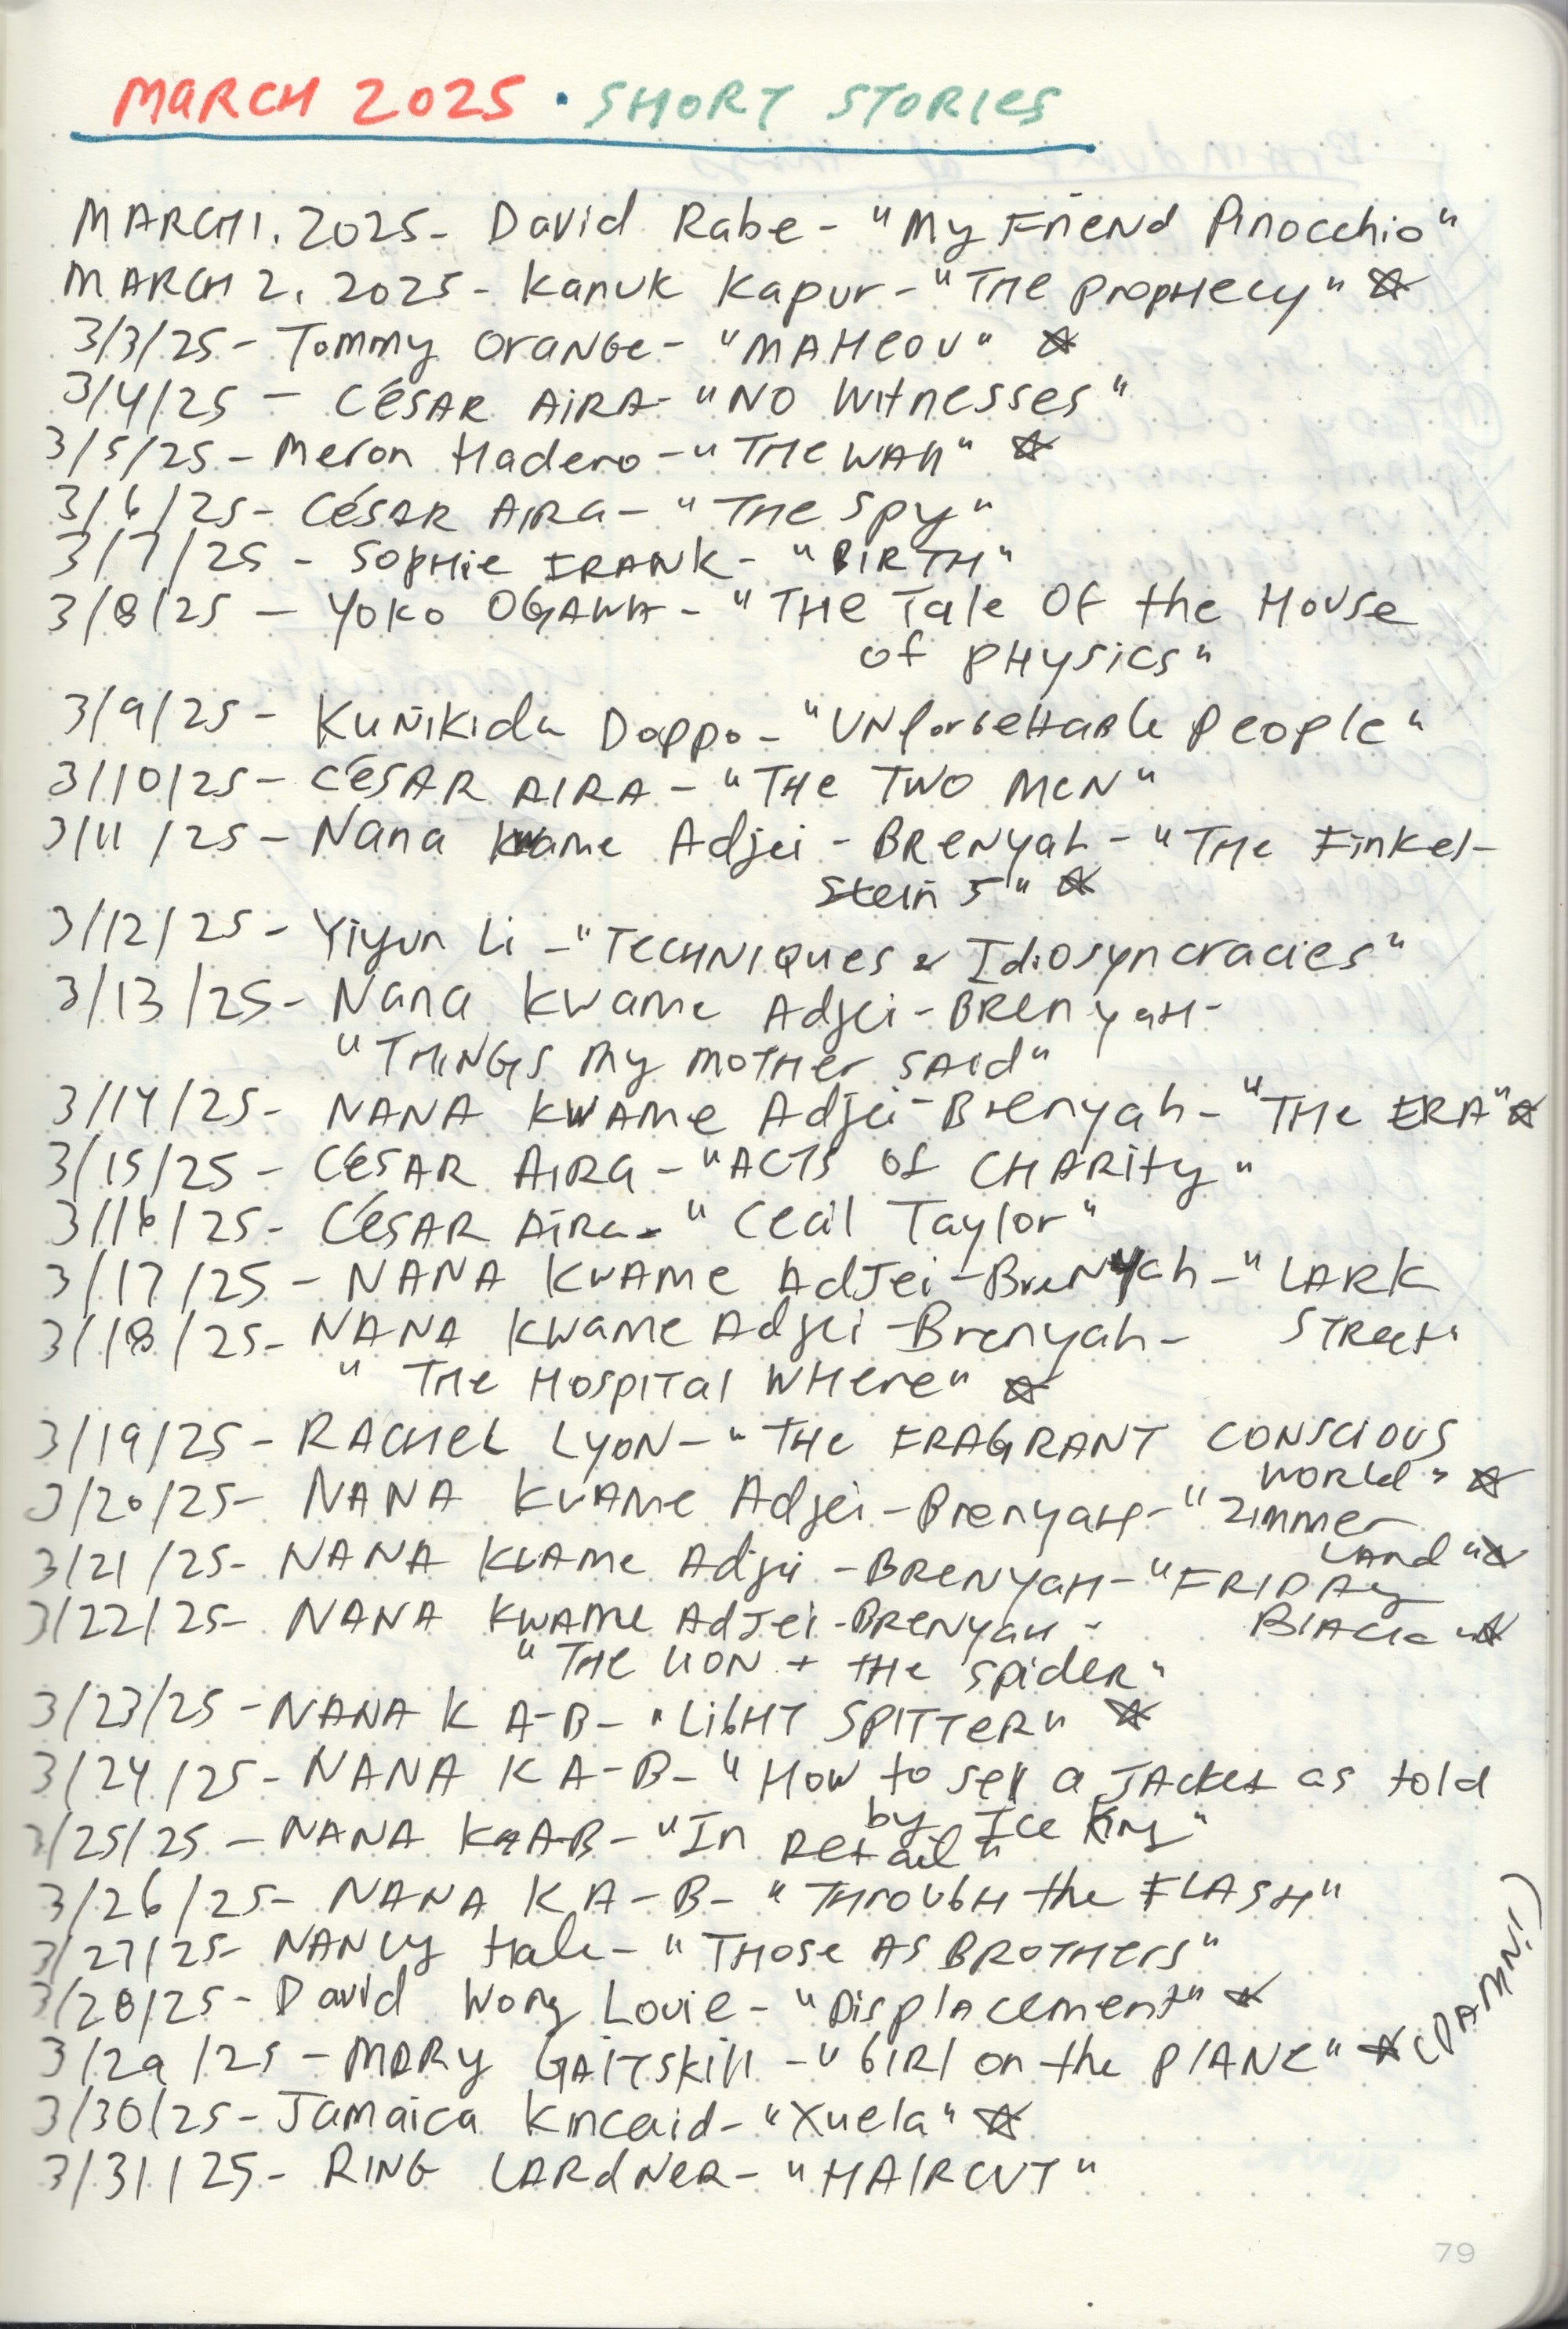 MARCH 2025 · SHORT STORIES
MARCH 1, 2025 - David Rabe - "My Friend Pinocchio"
MARCH 2, 2025 - Kanuk Kapur - "The Prophecy" ☆
3/3/25 - Tommy Orange - "MAHEOU" ☆
3/4/25 - César Aira - "No Witnesses"
3/5/25 - Meron Hadero - "The Wall" ☆
3/6/25 - César Aira - "The Spy"
3/7/25 - Sophie Frank - "Birth"
3/8/25 - Yoko Ogawa - "The Tale Of the House
of Physics"
3/9/25 - Kunikida Doppo - "Unforgettable People"
3/10/25 - César Aira - "The Two Men"
3/11/25 - Nana Kwame Adjei-Brenyah - "The Finkel-
stein 5" ☆
3/12/25 - Yiyun Li - "Techniques & Idiosyncracies"
3/13/25 - Nana Kwame Adjei-Brenyah -
"Things My Mother Said"
3/14/25 - Nana Kwame Adjei-Brenyah - "The Era" ☆
3/15/25 - César Aira - "Acts of Charity"
3/16/25 - César Aira - "Cecil Taylor"
3/17/25 - Nana Kwame Adjei-Brenyah - "Lark
Street"
3/18/25 - Nana Kwame Adjei-Brenyah -
"The Hospital Where" ☆
3/19/25 - Rachel Lyon - "The Fragrant Conscious
World" ☆
3/20/25 - Nana Kwame Adjei-Brenyah - "Zimmer
Land" ☆
3/21/25 - Nana Kwame Adjei-Brenyah - "Friday
Black" ☆
3/22/25 - Nana Kwame Adjei-Brenyah -
"The Lion + the Spider"
3/23/25 - Nana K A-B - "Light Spitter" ☆
3/24/25 - Nana K A-B - "How to sell a Jacket as told
by Ice King"
3/25/25 - Nana K A-B - "In Retail"
3/26/25 - Nana K A-B - "Through the Flash"
3/27/25 - Nancy Hale - "Those As Brothers"
3/28/25 - David Wong Louie - "Displacement" ☆
3/29/25 - Mary Gaitskill - "Girl on the Plane" ☆ (DAMN!)
3/30/25 - Jamaica Kincaid - "Xuela" ☆
3/31/25 - Ring Lardner - "Haircut"
79